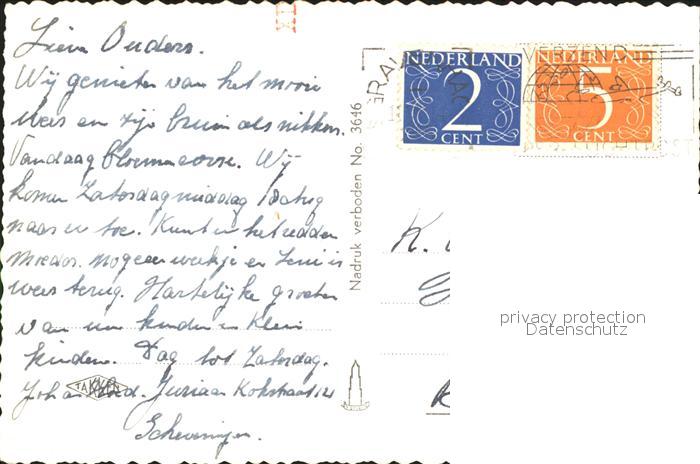 Lieve Ouders.
Wij genieten van het mooie
weer en zijn bruin als nikkers.
Vandaag bloemencorso. Wij
komen Zaterdagmiddag
naar u toe. Kunt u het redden
Moeder. nog een weekje en Leni is
weer terug. Hartelijke groeten
van uw kinderen en Klein
kinderen. Dag tot Zaterdag.
Joh Juriaan Kokstraat 121
Scheveningen.
TAKKEN
Nadruk verboden No. 3646
NEDERLAND
2
CENT
NEDERLAND
5
CENT
VERZENDT
K.
privacy protection
Datenschutz